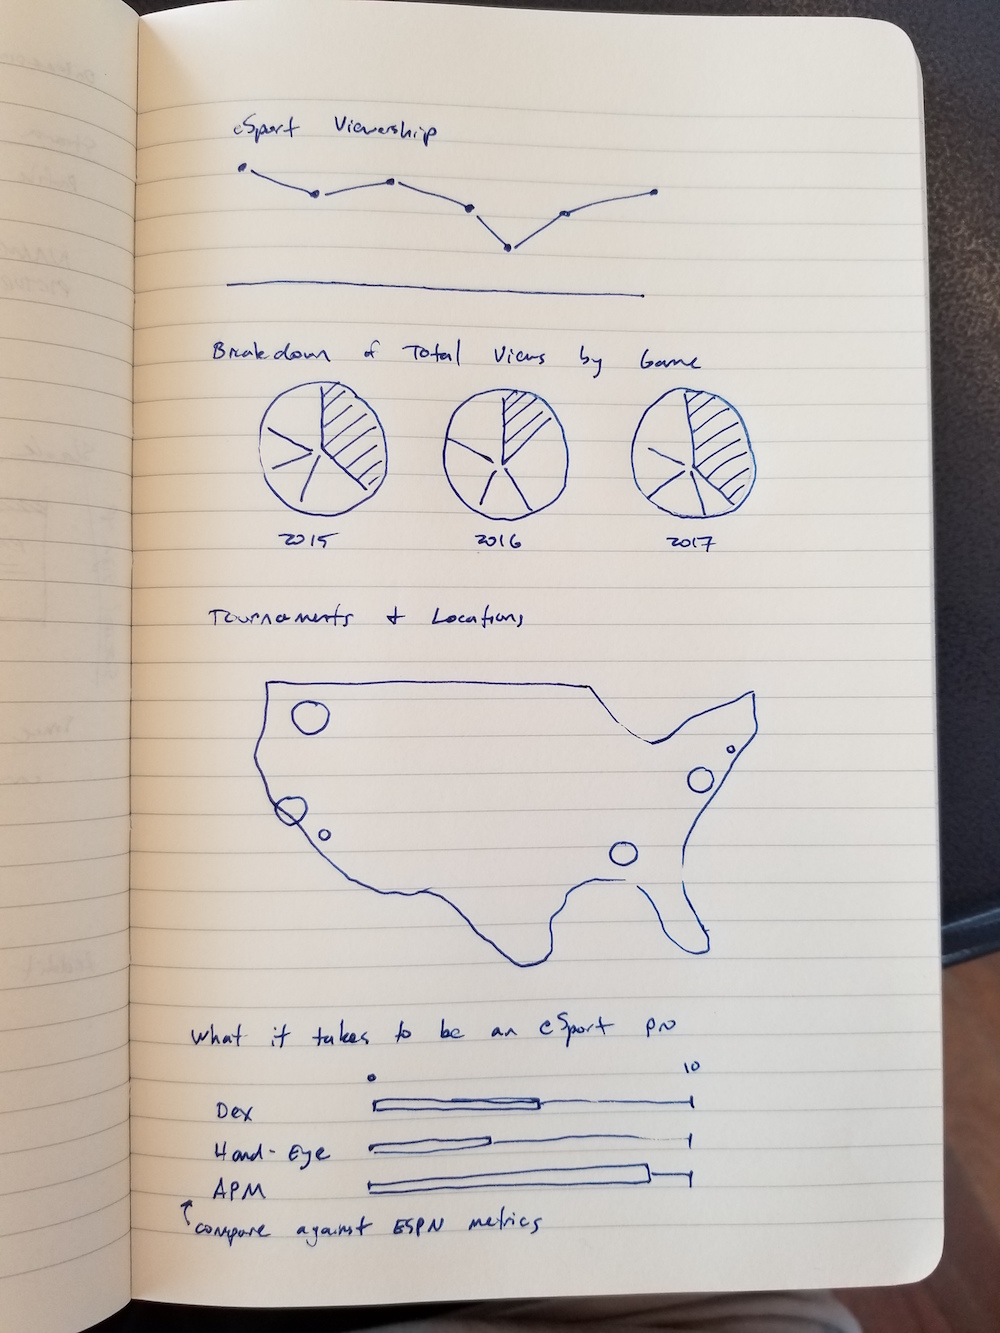 eSport Viewership
Breakdown of Total Views by Game
2015 2016 2017
Tournaments + Locations
What it takes to be an eSport pro
0 10
Dex
Hand-Eye
APM
compare against ESPN metrics